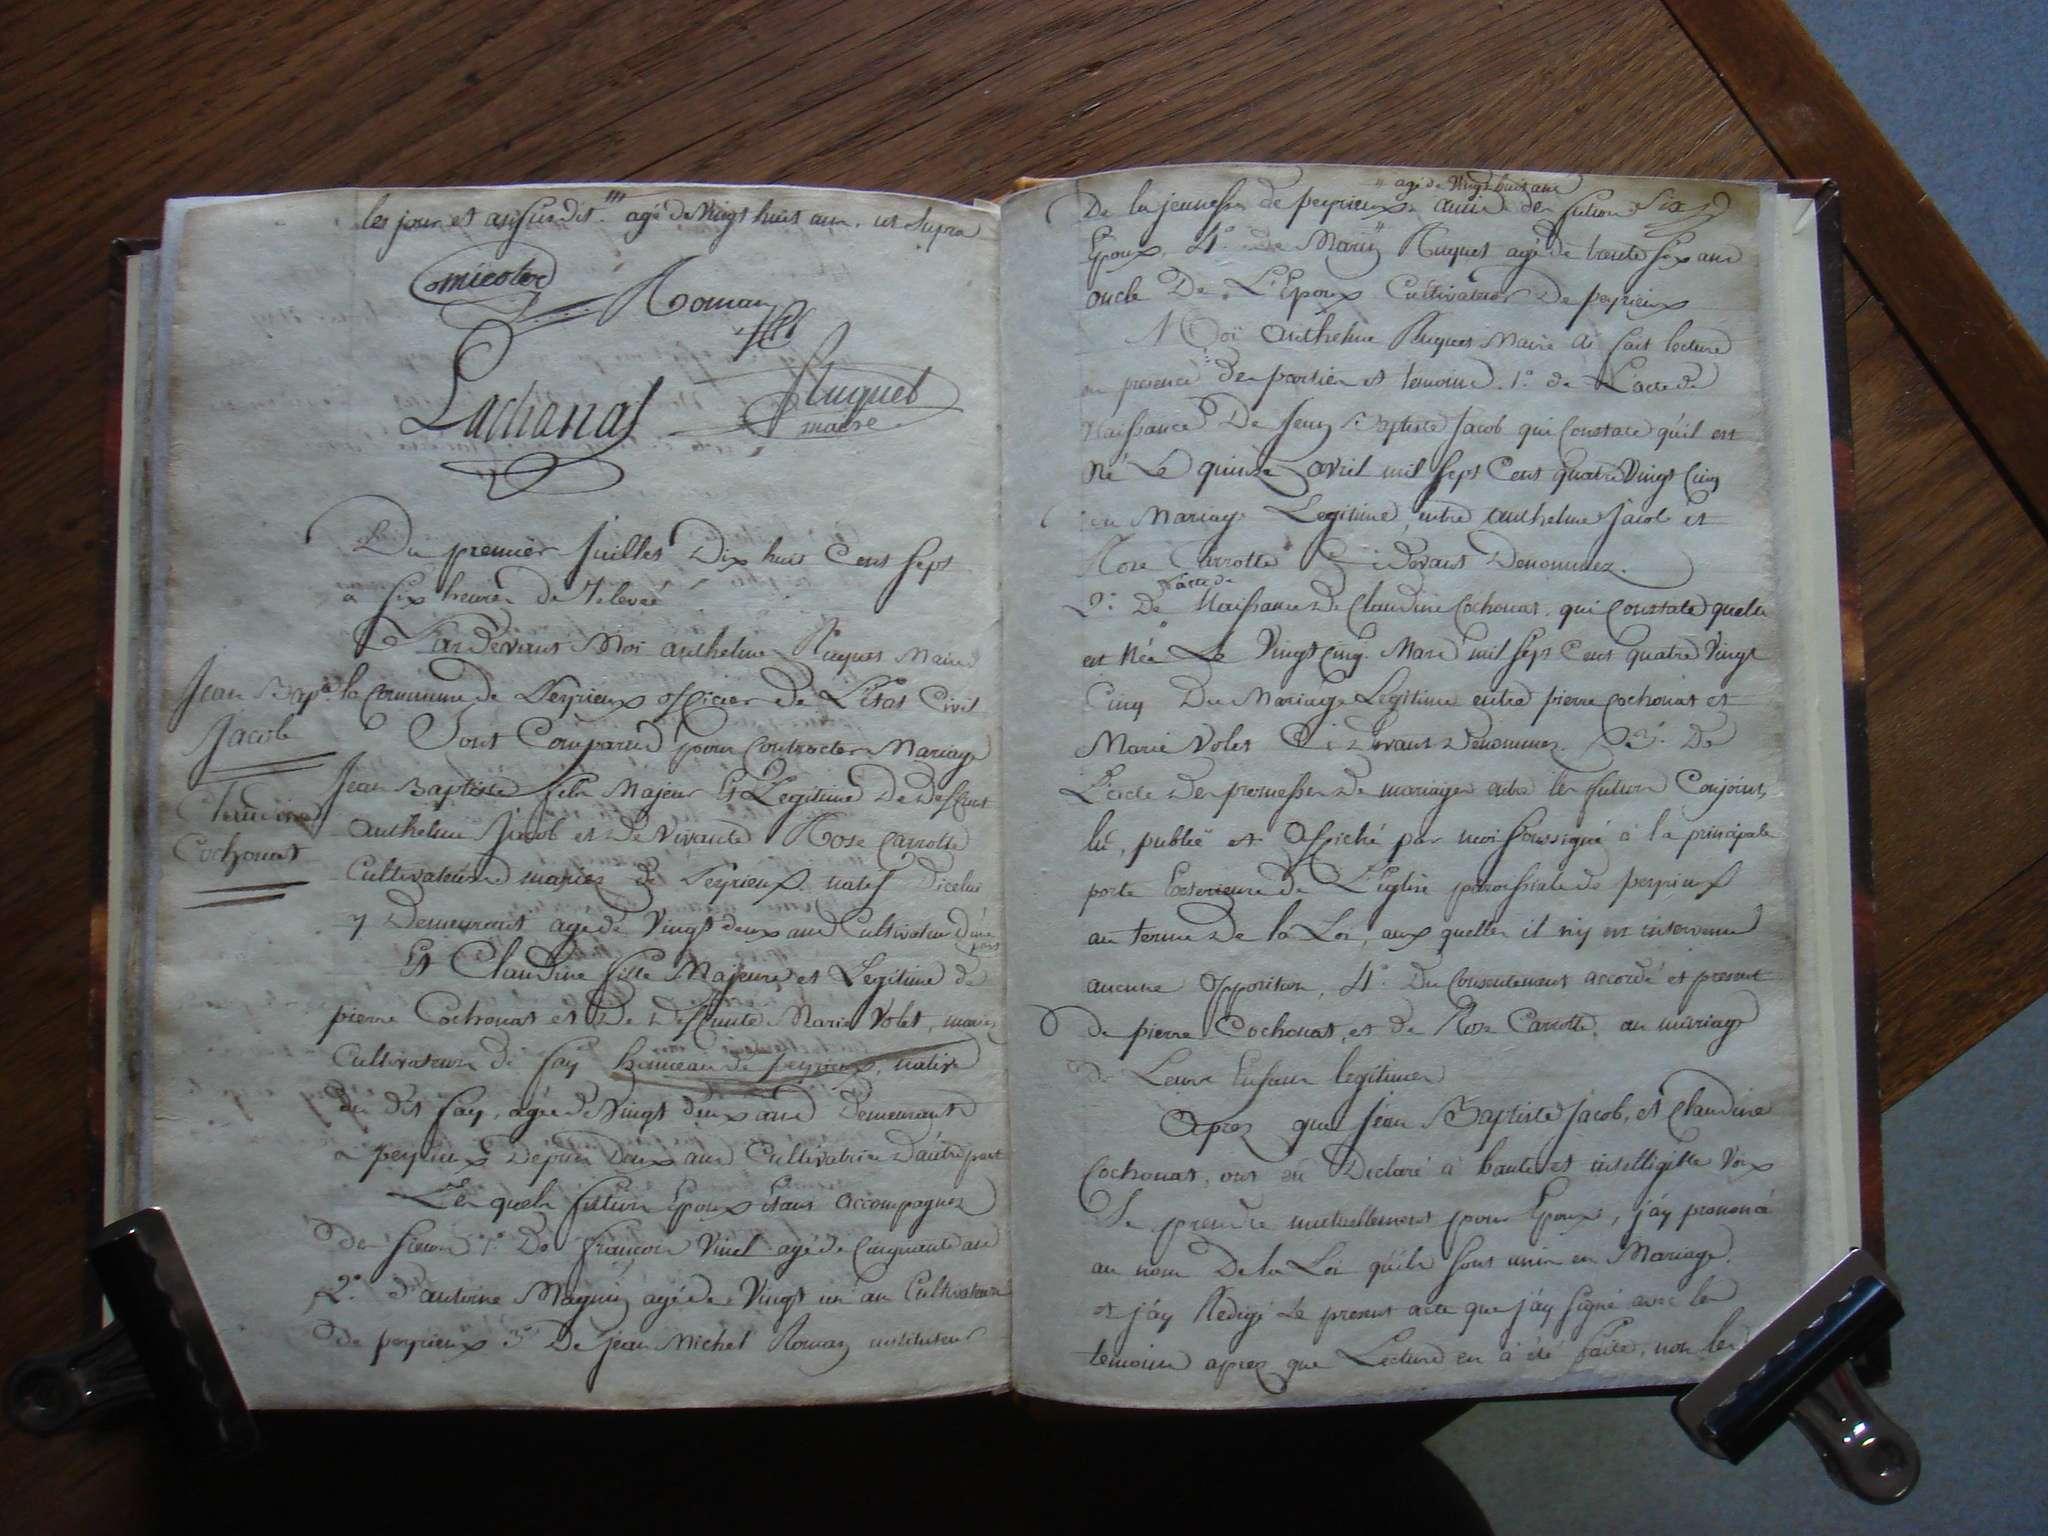 les jour et an susdit. /// agé de Vingt huit ans. ut supra
micolier
Roman
Lachanal
Huguet
maire
Du premier Juillet Dix huit Cent Sept
a Six heures De Relevée
Par Devant Moi Anthelme Huguet Maire
Jean Bapte
Jacob
Claudine
Cochonat
la Commune de Peyrieux officier de L'Etat Civil
Sont Comparus pour Contracter Mariage
Jean Baptiste fils Majeur Et Legitime De Deffunt
Anthelme Jacob et De Vivante Rose Carrotte
Cultivateurs mariez de Peyrieux. natif Dicelui
y Demeurant agé de Vingt deux ans Cultivateur D'une
part
Et Claudine fille Majeure et Legitime de
pierre Cochonat et De Deffunte Marie Volet, mariez
Cultivateurs de fay hameau de peyrieux, native
du dit fay, agée de Vingt deux ans Demeurant
a peyrieux Depuis Deux ans Cultivatrice D'autre part
Les quels futurs Epoux Etant accompagnez
de 1° De françois Vinet agé de Cinquante ans
2° d'antoine Magnin agé de Vingt un an Cultivateurs
de peyrieux 3° De jean Michel Roman instituteur
// agé de Vingt huit ans
De la jeunesse de peyrieux // amis des futurs Six
Epoux, 4° De Marin Huguet agé de trente Six ans
oncle De L'Epoux Cultivateur De peyrieux
Moi Anthelme Huguet Maire ai fait lecture
en presence des parties et temoins. 1° de L'acte de
Naissance De Jean Baptiste Jacob qui Constate qu'il est
Né Le quinze avril mil Sept Cent quatre Vingt Cinq
du Mariage Legitime, entre Anthelme Jacob et
Rose Carrotte Ci Devant Denommez.
L'acte de
2° De Naissance de Claudine Cochonat. qui Constate quelle
est Née Le Vingt Cinq Mars mil Sept Cent quatre Vingt
Cinq Du Mariage Legitime entre pierre Cochonat et
Marie Volet Ci Devant Denommez. 3° De
L'acte Des promesses de mariage entre les futurs Conjoints,
lu, publié et Affiché par moi Soussigné à la principale
porte Exterieure de L'Eglise paroissiale de peyrieux
au terme De la Loi, aux quelles il n'y est intervenu
aucune Opposition, 4° Du Consentement accordé et present
De pierre Cochonat, et de Rose Carrotte. au mariage
de Leurs Enfans legitimes
Apres que Jean Baptiste Jacob, et Claudine
Cochonat, ont eu Declaré à haute et intelligible Voix
Se prendre mutuellement pour Epoux, j'ay prononcé
au nom De la Loi qu'ils Sont unis en Mariage.
et j'ay Redigé Le present acte que j'ay Signé avec les
temoins apres que Lecture en à été faite, non les